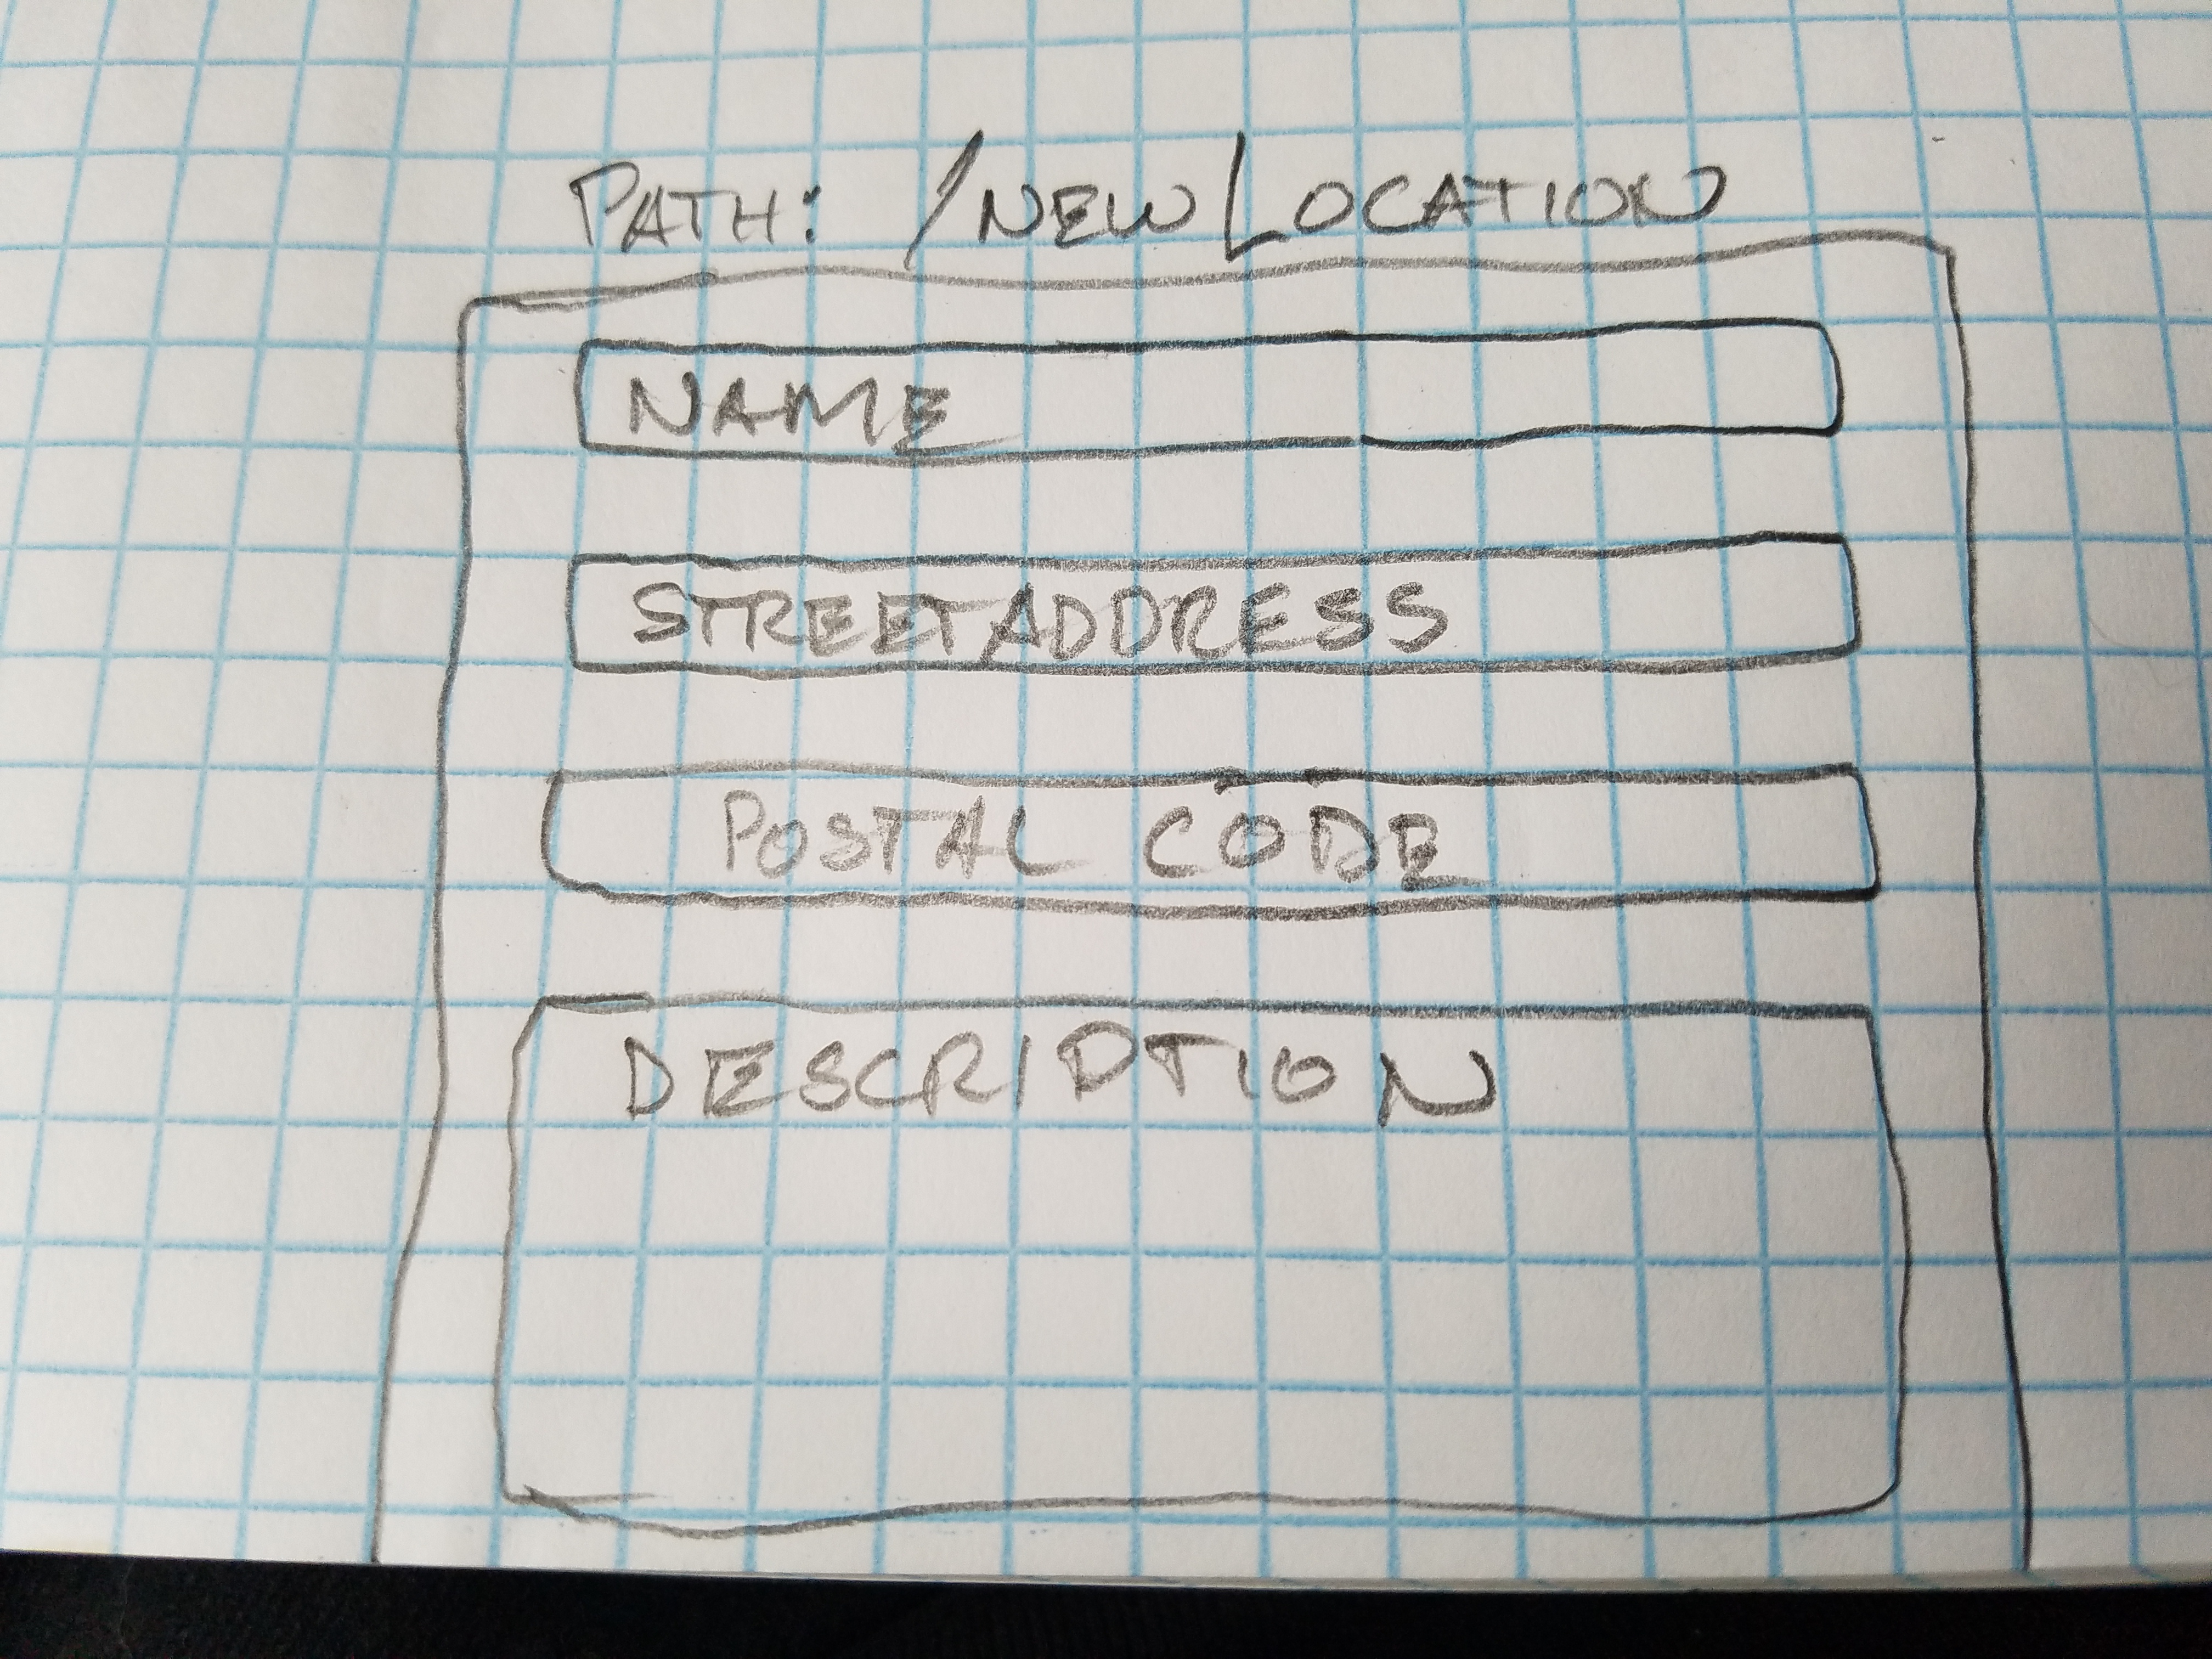 PATH: /NEWLOCATION
NAME
STREETADDRESS
POSTAL CODE
DESCRIPTION